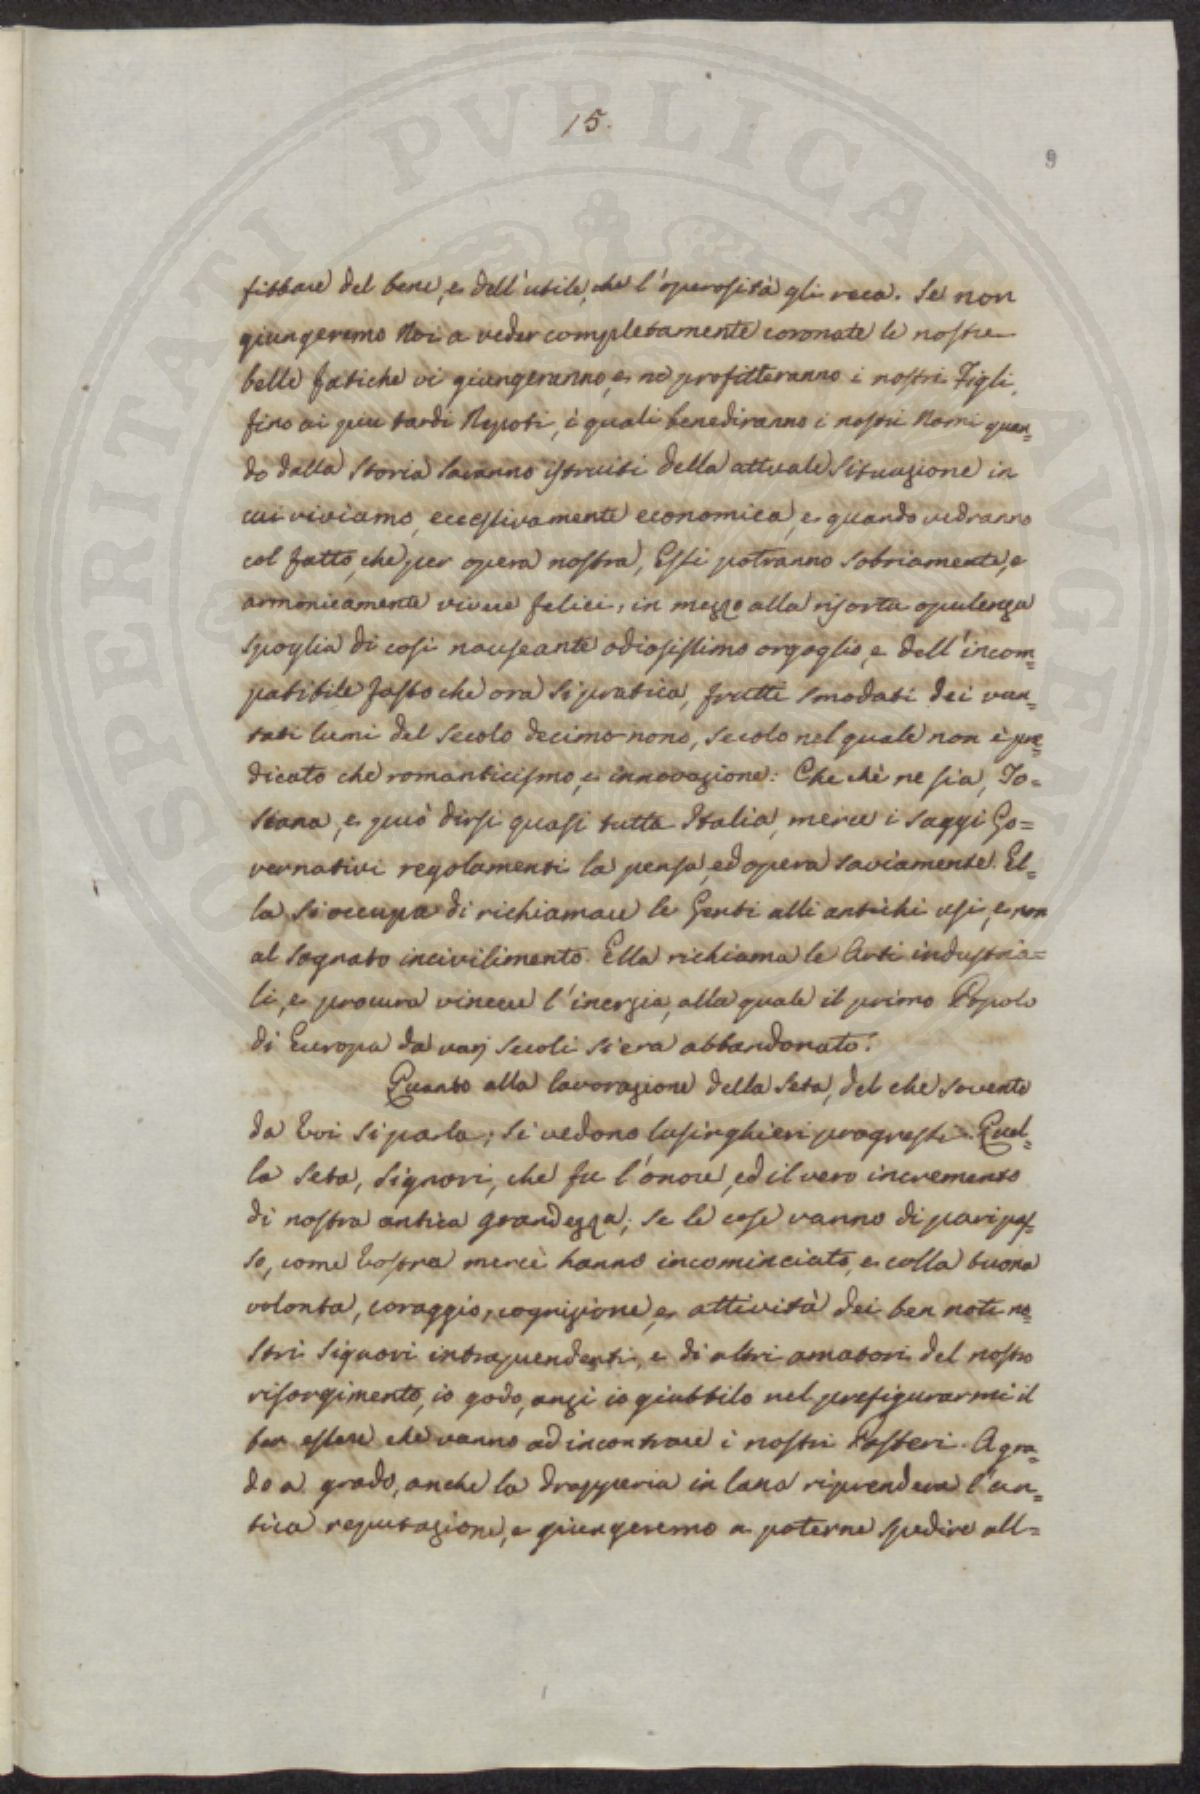 15.
9
fittare del bene, e dell'utile, che l'operosità gli reca. Se non
giungeremo Noi a veder completamente coronate le nostre
belle fatiche vi giungeranno, e ne profitteranno i nostri Figli,
fino ai piu tardi Nepoti, i quali benediranno i nostri Nomi quan=
do dalla Storia saranno istruiti della attuale Situazione in
cui viviamo, eccessivamente economica, e quando vedranno
col fatto, che per opera nostra, Essi potranno sobriamente, e
armonicamente vivere felici, in mezzo alla risorta opulenza
spoglia di così nauseante odiosissimo orgoglio, e dell'incom=
patibile fasto che ora si pratica, frutti smodati dei van=
tati lumi del Secolo decimo-nono, secolo nel quale non è pre=
dicato che romanticismo, e innovazione: Che chè ne sia, To=
scana, e può dirsi quasi tutta Italia, mercè i saggi Go=
vernativi regolamenti la pensa, ed opera saviamente. El=
la si occupa di richiamare le Genti alli antichi usi, e non
al sognato incivilimento. Ella richiama le Arti industria=
li, e procura vincere l'inerzia, alla quale il primo Popolo
di Europa da varj Secoli si era abbandonato.
Quanto alla lavorazione della Seta, del che sovente
da Voi si parla; si vedono lusinghieri progressi. Quel=
la Seta, Signori, che fu l'onore, ed il vero incremento
di nostra antica grandezza; se le cose vanno di pari pas=
so, come Vostra mercè hanno incominciato, e colla buona
volonta, coraggio, cognizione, e attività dei ben noti no=
stri Signori intraprendenti, e di altri amatori del nostro
risorgimento, io godo, anzi io giubbilo nel prefigurarmi il
ben essere che vanno ad incontrare i nostri Posteri. A gra=
do a grado, anche la drapperia in lana riprenderà l'an=
tica reputazione, e giungeremo a poterne spedire all=